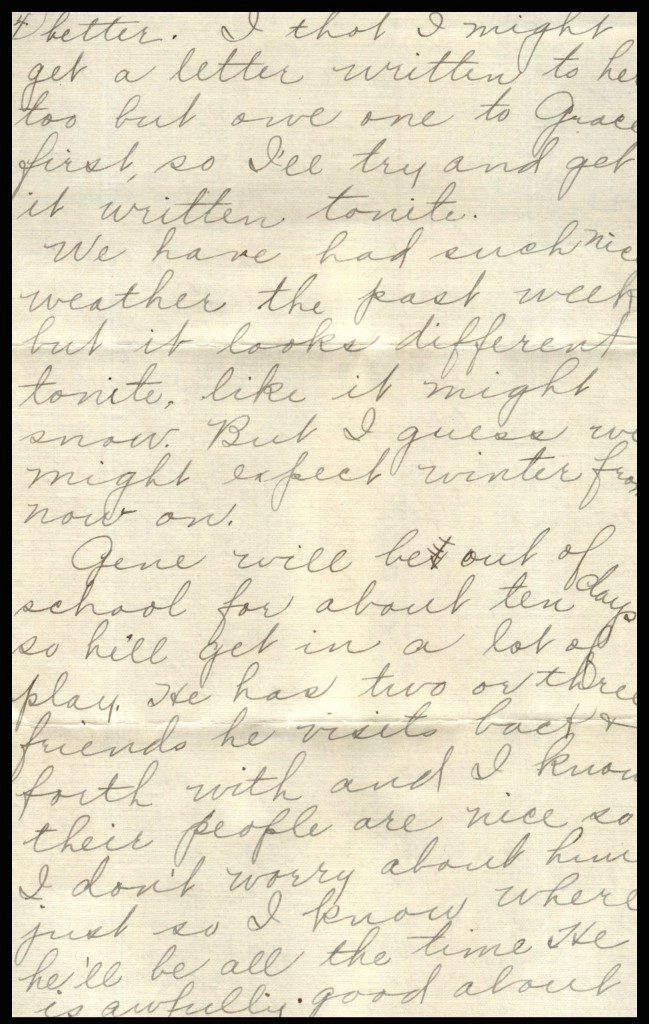 4) better. I thot I might
get a letter written to her
too but owe one to Grace
first, so I'll try and get
it written tonite.
We have had such nice
weather the past week
but it looks different
tonite, like it might
snow. But I guess we
might expect winter from
now on.
Gene will be out of
school for about ten days
so he'll get in a lot of
play. He has two or three
friends he visits back &
forth with and I know
their people are nice so
I don't worry about him
just so I know where
he'll be all the time He
is awfully good about